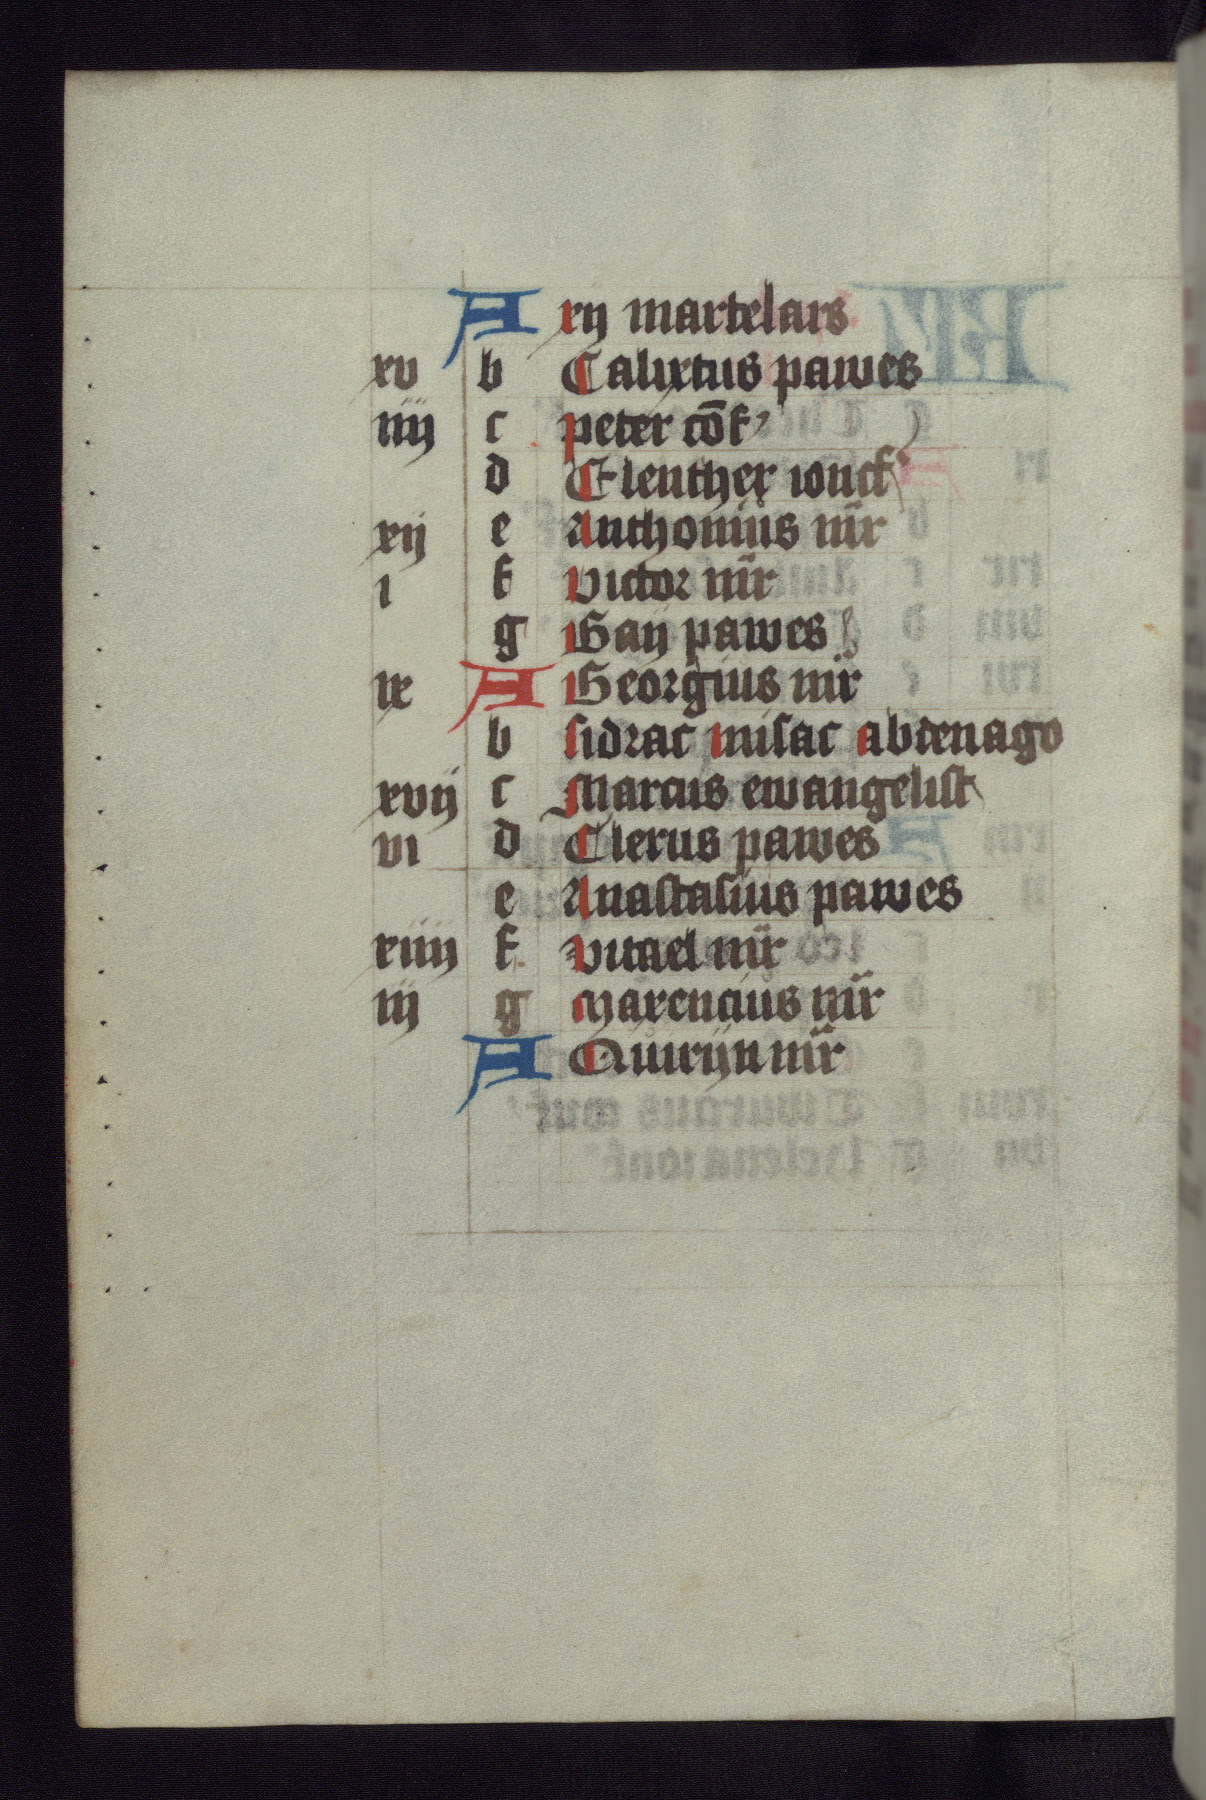 A xij martelars
xv b Calixtus pawes
iiij c peter cōf
d Elenther ioncf
xij e Anthonius mr̄
i f victor mr̄
g Gaij pawes
ix A Georgius mr̄
b sidrac misac abdenago
xvij c Marcus ewangelist
vi d Clerus pawes
e Anastasius pawes
xiiij f vitael mr̄
iij g Maxencius mr̄
A Quirijn mr̄